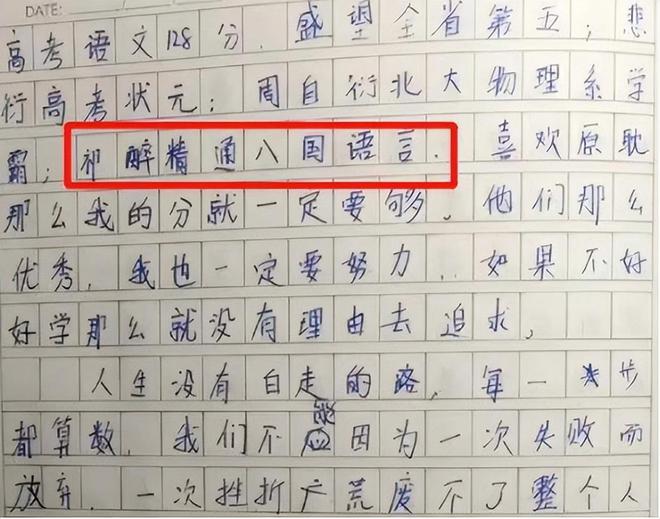 DATE:
高考语文128分.盛望全省第五;悲
衍高考状元;周自衍北大物理系学
霸;祁醉精通八国语言.喜欢原耽
那么我的分就一定要够.他们那么
优秀,我也一定要努力..如果不好
好学那么就没有理由去追求,
人生没有白走的路,每一步
都算数,我们不能因为一次失败而
放弃.一次挫折广荒废不了整个人